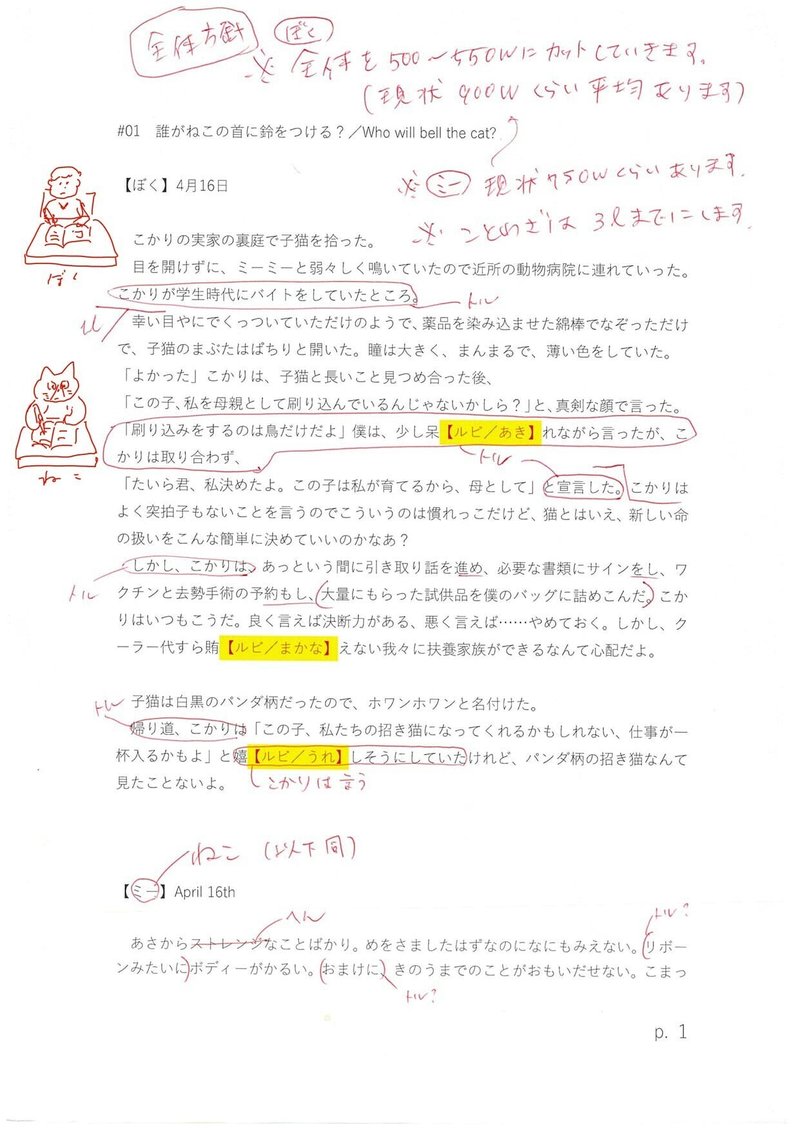 全体方針
ぼく
※ 全体を500〜550Wにカットしていきます。
(現状900Wくらい平均あります)
#01　誰がねこの首に鈴をつける？／Who will bell the cat?
※ ミー 現状750Wくらいあります。
※ ことわざは3つまでにします。
【ぼく】4月16日
ぼく
こかりの実家の裏庭で子猫を拾った。
目を開けずに、ミーミーと弱々しく鳴いていたので近所の動物病院に連れていった。
こかりが学生時代にバイトをしていたところ。
トル
幸い目やにでくっついていただけのようで、薬品を染み込ませた綿棒でなぞっただけ
で、子猫のまぶたはぱちりと開いた。瞳は大きく、まんまるで、薄い色をしていた。
「よかった」こかりは、子猫と長いこと見つめ合った後、
「この子、私を母親として刷り込んでいるんじゃないかしら？」と、真剣な顔で言った。
「刷り込みをするのは鳥だけだよ」僕は、少し呆【ルビ／あき】れながら言ったが、こ
かりは取り合わず、
トル
ねこ
「たいら君、私決めたよ。この子は私が育てるから、母として」と宣言した。こかりは
よく突拍子もないことを言うのでこういうのは慣れっこだけど、猫とはいえ、新しい命
の扱いをこんな簡単に決めていいのかなあ？
しかし、こかりは、あっという間に引き取り話を進め、必要な書類にサインをし、ワ
トル
クチンと去勢手術の予約もし、大量にもらった試供品を僕のバッグに詰めこんだ。こか
りはいつもこうだ。良く言えば決断力がある、悪く言えば……やめておく。しかし、ク
ーラー代すら賄【ルビ／まかな】えない我々に扶養家族ができるなんて心配だよ。
子猫は白黒のパンダ柄だったので、ホワンホワンと名付けた。
トル
帰り道、こかりは「この子、私たちの招き猫になってくれるかもしれない、仕事が一
杯入るかもよ」と嬉【ルビ／うれ】しそうにしていたけれど、パンダ柄の招き猫なんて
見たことないよ。
こかりは言う
ねこ (以下同)
【ミー】April 16th
へん
トル?
あさからストレンジなことばかり。めをさましたはずなのになにもみえない。リボー
ンみたいにボディーがかるい。おまけに、きのうまでのことがおもいだせない。こまっ
トル?
p. 1